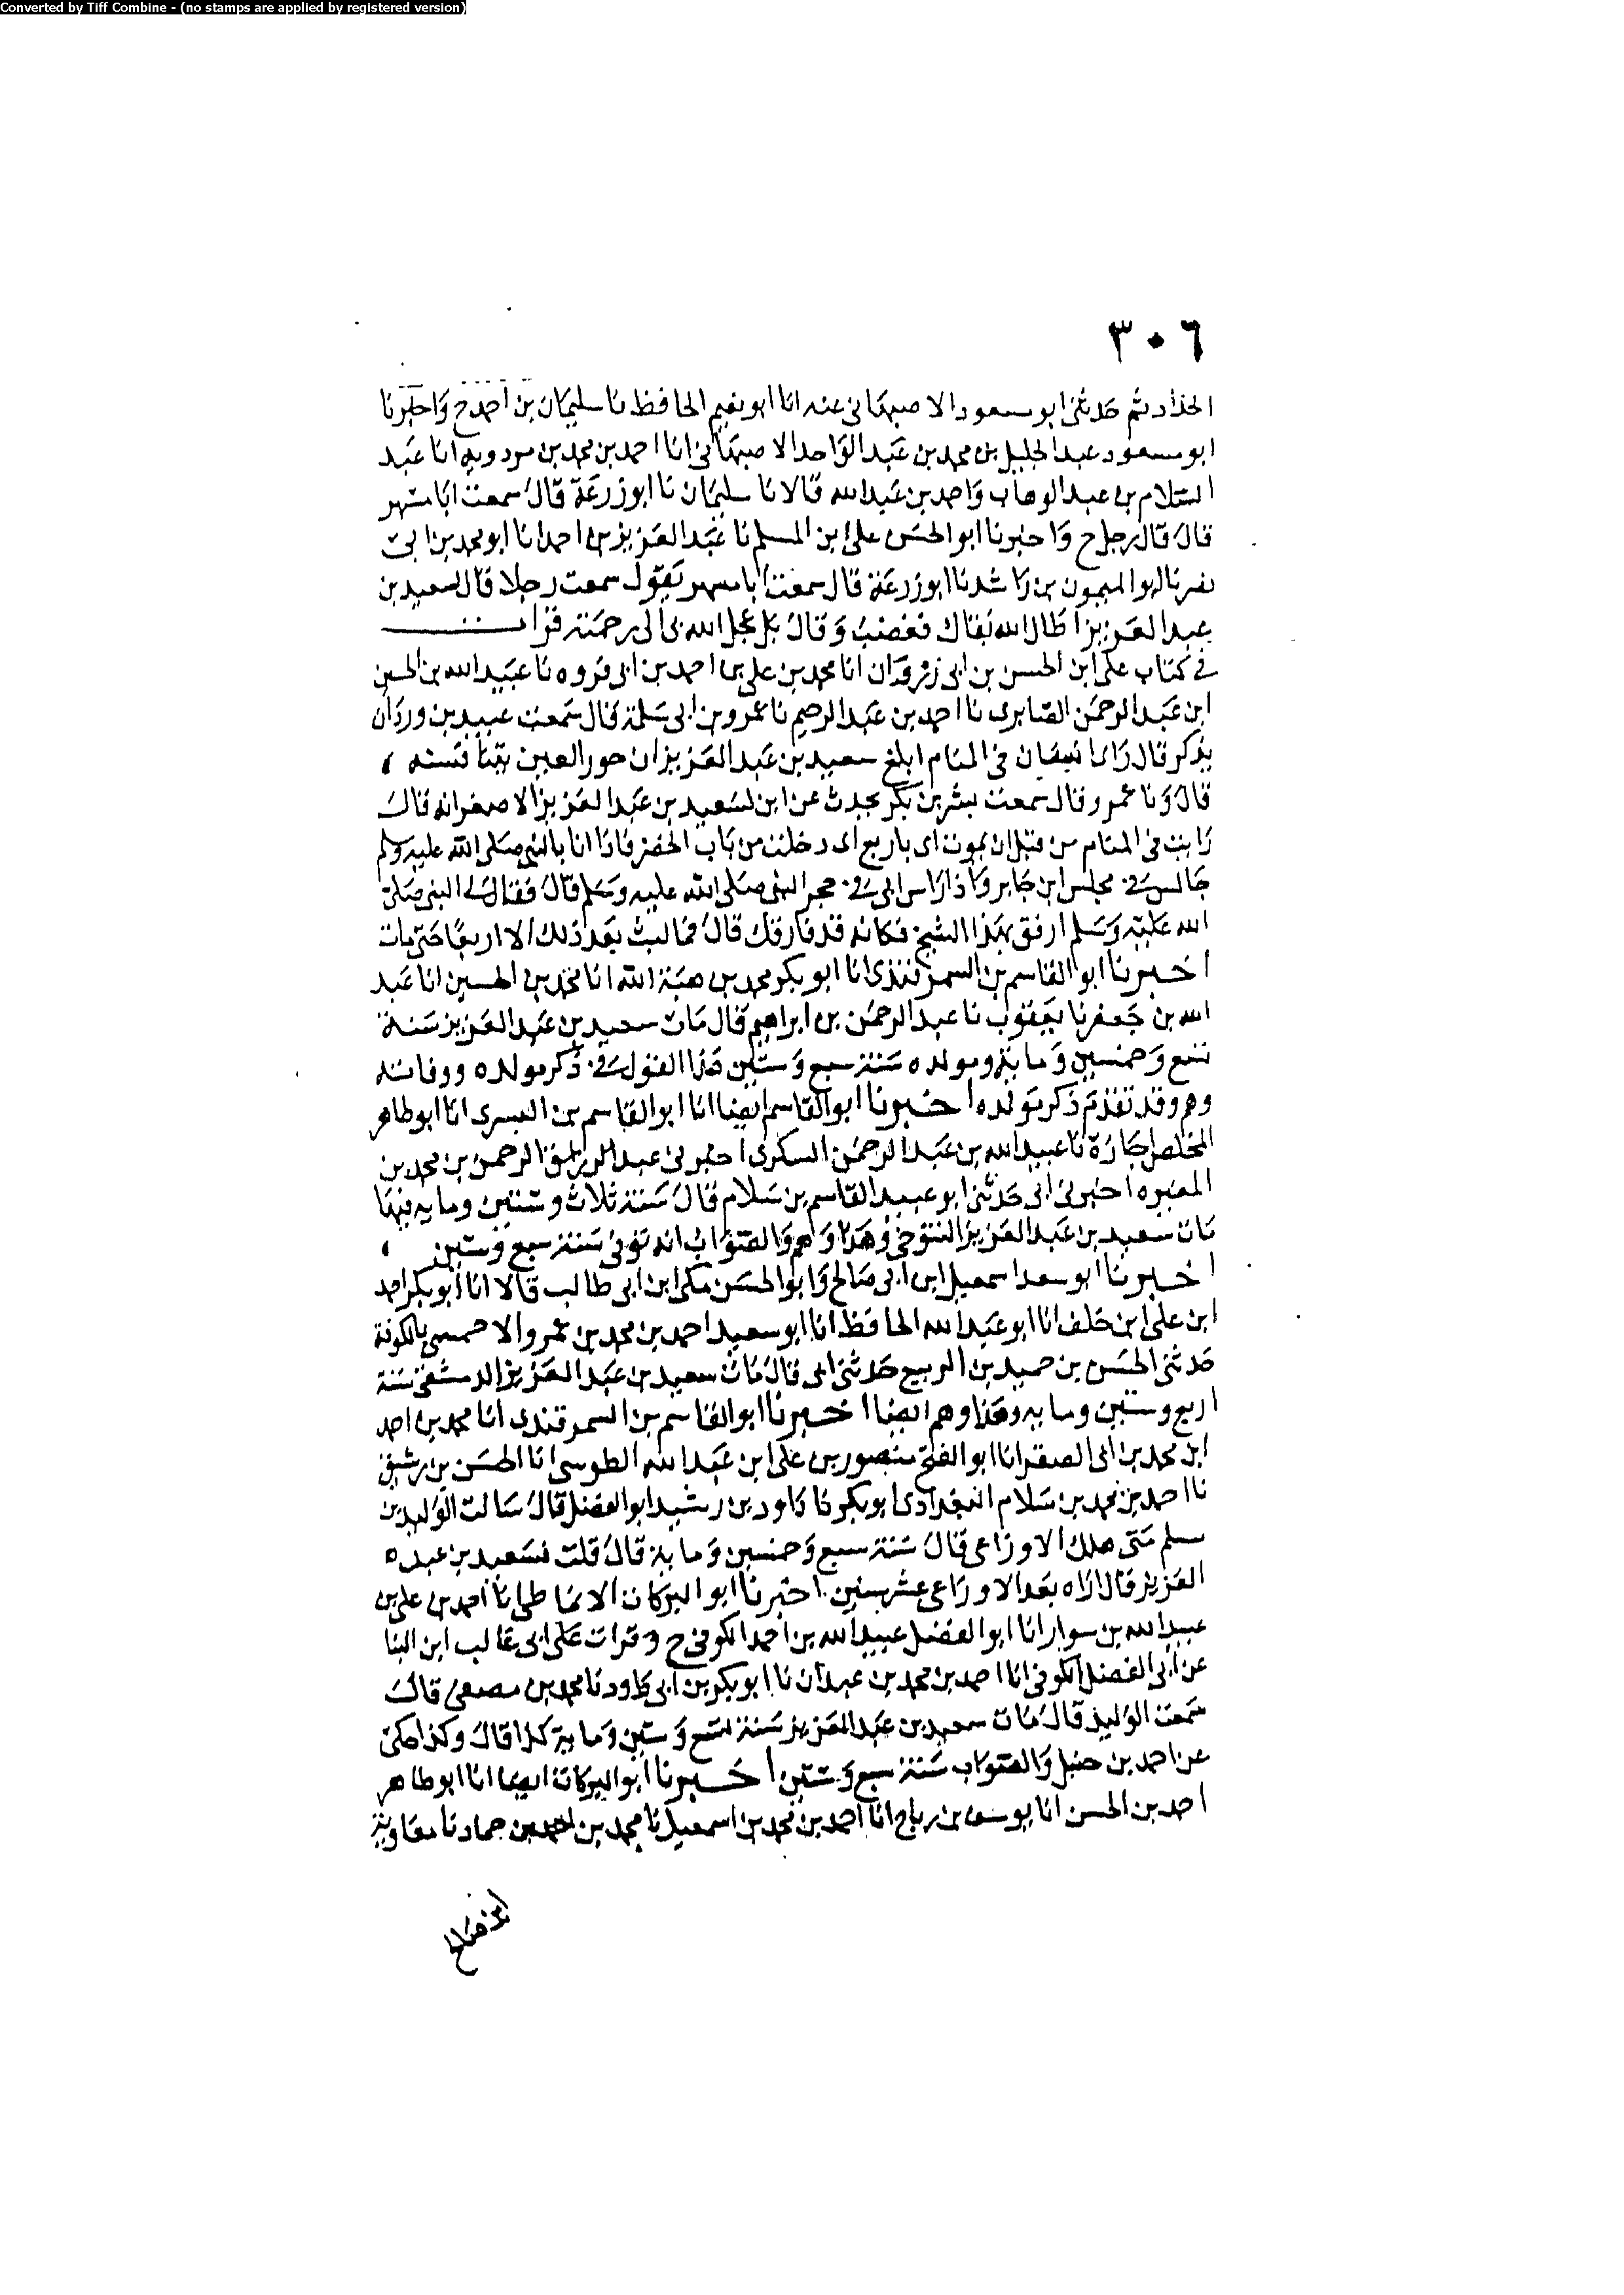 Converted by Tiff Combine - (no stamps are applied by registered version)
٣٠٦
الحداد ثم حدثني ابو مسعود الاصبهاني عنه انا ابو نعيم الحافظ نا سليمان بن احمد ح وَاخبرنا
ابو مسعود عبد الجليل بن محمد بن عَبد الوَاحد الاصبهَاني انا احمد بن محمد بن مردويه انا عَبد
السَلام بن عبد الوهاب وَاحمد بن عَبد الله قالا نا سليمَان نا ابو زرعَة قالَ سمعت ابَا مسْهر
قالَ قال رجل ح وَاخبرنا ابو الحسَن علي ابن المسلم نا عَبد العَزيز بن احمد انا ابو محمد بن ابي
نصر نا ابو الميمون بن رَاشد نا ابو زرعَة قال سمعت ابا مسهر يَقول سمعت رجلا قال لسعيد بن
عبد العَزيز اطَال الله بَقاك فغضبَ وَقالَ بَل عجل الله بي الى رحمَته قرات
في كتاب علي ابن الحسن بن ابي زَرْوَان انا محمد بن علي بن احمد بن ابي فروه نا عبَيد الله بن الحسين
ابن عَبد الرحمَن الصَابري نا احمد بن عَبد الرحيم نا عمرو بن ابي سَلمة قال سَمعت عبيد بن وردَان
يذكر قال رَاى انسَان في المنَام ابلغ سعيد بن عَبد العَزيز ان حور العين ،
قالَ وَنا عمرو قال سمعت بشر بن بَكر يحدث عن ابن لسَعيد بن عَبد العَزيز الاصغر انه قالَ
رَايت في المنَام من قبل ان يموت ابي باربع اني دخلت من بَاب الخضر فاذا انا بالنبي صلى الله عليه وسلم
جَالس في مجلس ابن جَابر وَاذا رَاس ابي في حجر النبي صَلى الله عليه وَسَلم قالَ فقال لي النبي صَلى
الله عَليه وَسَلم ارفق بهَذا الشيخ فكانه قد فارقك قالَ فما لبث بَعد ذلك الا اربعًا حَتى مات
اخبرنا ابو القاسم بن السمرقندي انا ابو بكر محمد بن هبَة الله انا محمد بن الحسين انا عَبد
الله بن جَعفر نا يَعقوب نا عبد الرحمَن بن ابراهيم قال مَات سعيد بن عَبد العَزيز سَنة
تسع وَخمسين وَمايه ومولده سَنة سبع وَستين هَذا القول في ذكر مولده ووفاته
وهم وقد تقدم ذكر مَولده اخبرنا ابو القاسم ايضا انا ابو القاسم بن البسري انا ابو طاهر
المخلص اجَازة نا عبيد الله بن عَبد الرحمَن السكرى اخبرني عبد الرحمن بن محمد بن
المغيره اخبرني ابي حَدثني ابو عبيد القاسم بن سَلام قالَ سَنة ثلاث وستين ومايه فيهَا
مَات سَعيد بن عَبد العَزيز التنوخي وَهَذا وَهم وَالصَوَابُ انه توفي سَنة سبع وَستين ،
اخبرنا ابو سعد اسمعيل ابن ابي صَالح وَابو الحسَن مكي ابن ابي طالب قالا انا ابو بكر احمد
ابن علي ابن خلف انا ابو عَبد الله الحافظ انا ابو سعيد احمد بن محمد بن عمرو الاحمسي بالكوفة
حَدثني الحسَن بن حميد بن الربيع حَدثني ابي قالَ مَات سعيد بن عَبد العَزيز الدمشقي سَنة
اربع وستين ومايه وهَذا وهم ايضا اخبرنا ابو القاسم بن السمرقندي انا محمد بن احمد
ابن محمد بن ابي الصقر انا ابو الفتح منصور بن علي ابن عَبد الله الطوسي انا الحسَن بن رشيق
نا احمد بن محمد بن سَلام البغدادي ابو بكر نا دَاود بن رشيد ابو الفضل قالَ سَالت الوَليد بن
مسلم مَتى هلك الاوزَاعي قالَ سَنة سبع وَخمسين وَمايه قالَ قلت فسَعيد بن عبد
العَزيز قال ارَاه بَعد الاوزَاعي عشر سنين اخبرنا ابو البركات الانمَاطي انا احمد بن علي بن
عبيد الله بن سوار انا ابو الفضل عبيد الله بن احمد الكوفي ح وقرات عَلى ابي غالب ابن البنا
عن ابي الفضل الكوفي انا احمد بن محمد بن عبدان نا ابو بكر بن ابي دَاود نا محمد بن مصفى قالَ
سَمعت الوَليد قالَ مَات سعيد بن عَبد العَزيز سَنة تسَع وَستين وَمايه كذا قالَ وكذا حكى
عن احمد بن حنبل وَالصَوَاب سَنة سبع وَستين اخبرنا ابو البركات ايضا انا ابو طاهر
احمد بن الحسن انا يوسف بن رباح انا احمد بن محمد بن اسمعيل نا محمد بن احمد بن حماد نا معَاوية